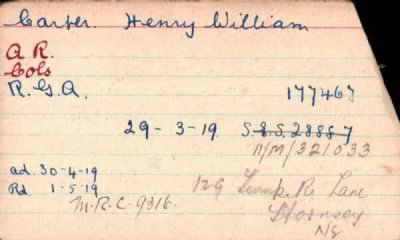 Carter. Henry William
A R.
Cols
R.G.A. 177467
29-3-19 S.&.S. 28887
11/M/321033
ad. 30-4-19
Rd 1-5-19
M.R.C. 9316.
129 Lane
Hornsey
N8